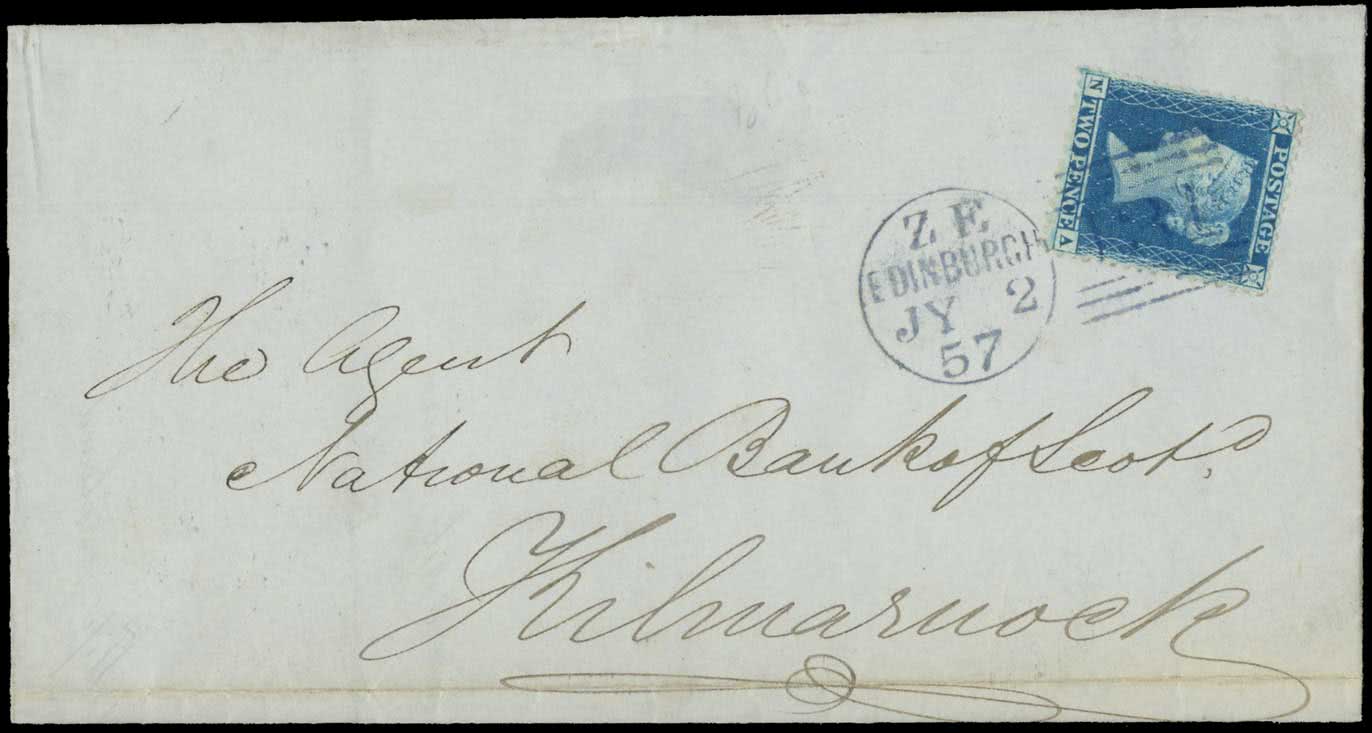 POSTAGE
N TWO PENCE A
Z E
EDINBURGH
JY 2
57
The Agent
National Bank of Scotd.
Kilmarnock